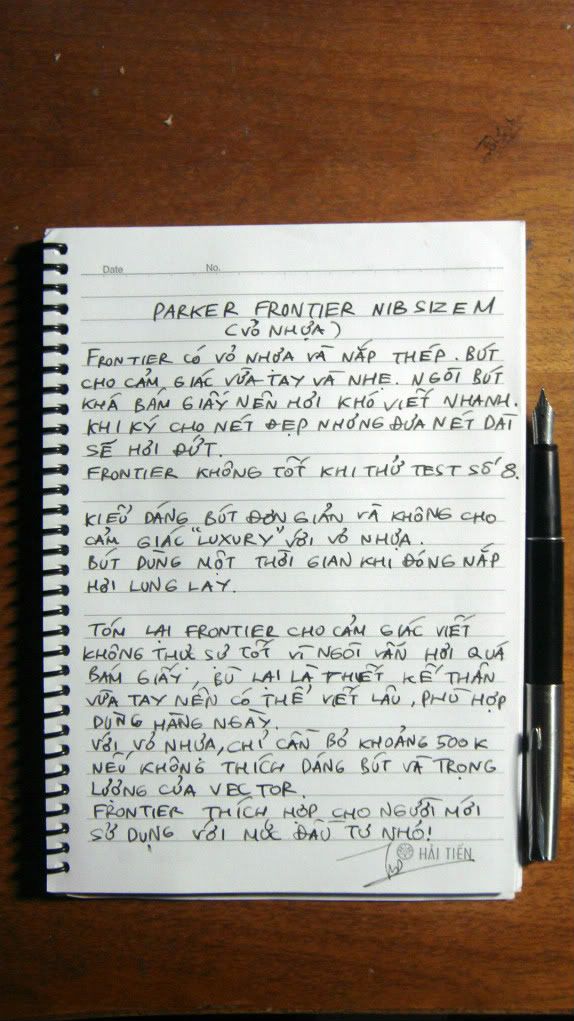 Date No.
PARKER FRONTIER NIB SIZE M
(VỎ NHỰA)
FRONTIER CÓ VỎ NHỰA VÀ NẮP THÉP. BÚT
CHO CẢM GIÁC VỪA TAY VÀ NHẸ. NGÒI BÚT
KHÁ BÁM GIẤY NÊN HƠI KHÓ VIẾT NHANH.
KHI KÝ CHO NÉT ĐẸP NHƯNG ĐƯA NÉT DÀI
SẼ HƠI ĐỨT.
FRONTIER KHÔNG TỐT KHI THỬ TEST SỐ 8.
KIỂU DÁNG BÚT ĐƠN GIẢN VÀ KHÔNG CHO
CẢM GIÁC "LUXURY" VỚI VỎ NHỰA.
BÚT DÙNG MỘT THỜI GIAN KHI ĐÓNG NẮP
HƠI LUNG LAY.
TÓM LẠI FRONTIER CHO CẢM GIÁC VIẾT
KHÔNG THỰC SỰ TỐT VÌ NGÒI VẪN HƠI QUÁ
BÁM GIẤY, BÙ LẠI LÀ THIẾT KẾ THÂN
VỪA TAY NÊN CÓ THỂ VIẾT LÂU, PHÙ HỢP
DÙNG HÀNG NGÀY.
VỚI VỎ NHỰA, CHỈ CẦN BỎ KHOẢNG 500K
NẾU KHÔNG THÍCH DÁNG BÚT VÀ TRỌNG
LƯỢNG CỦA VECTOR.
FRONTIER THÍCH HỢP CHO NGƯỜI MỚI
SỬ DỤNG VỚI MỨC ĐẦU TƯ NHỎ!
HẢI TIẾN